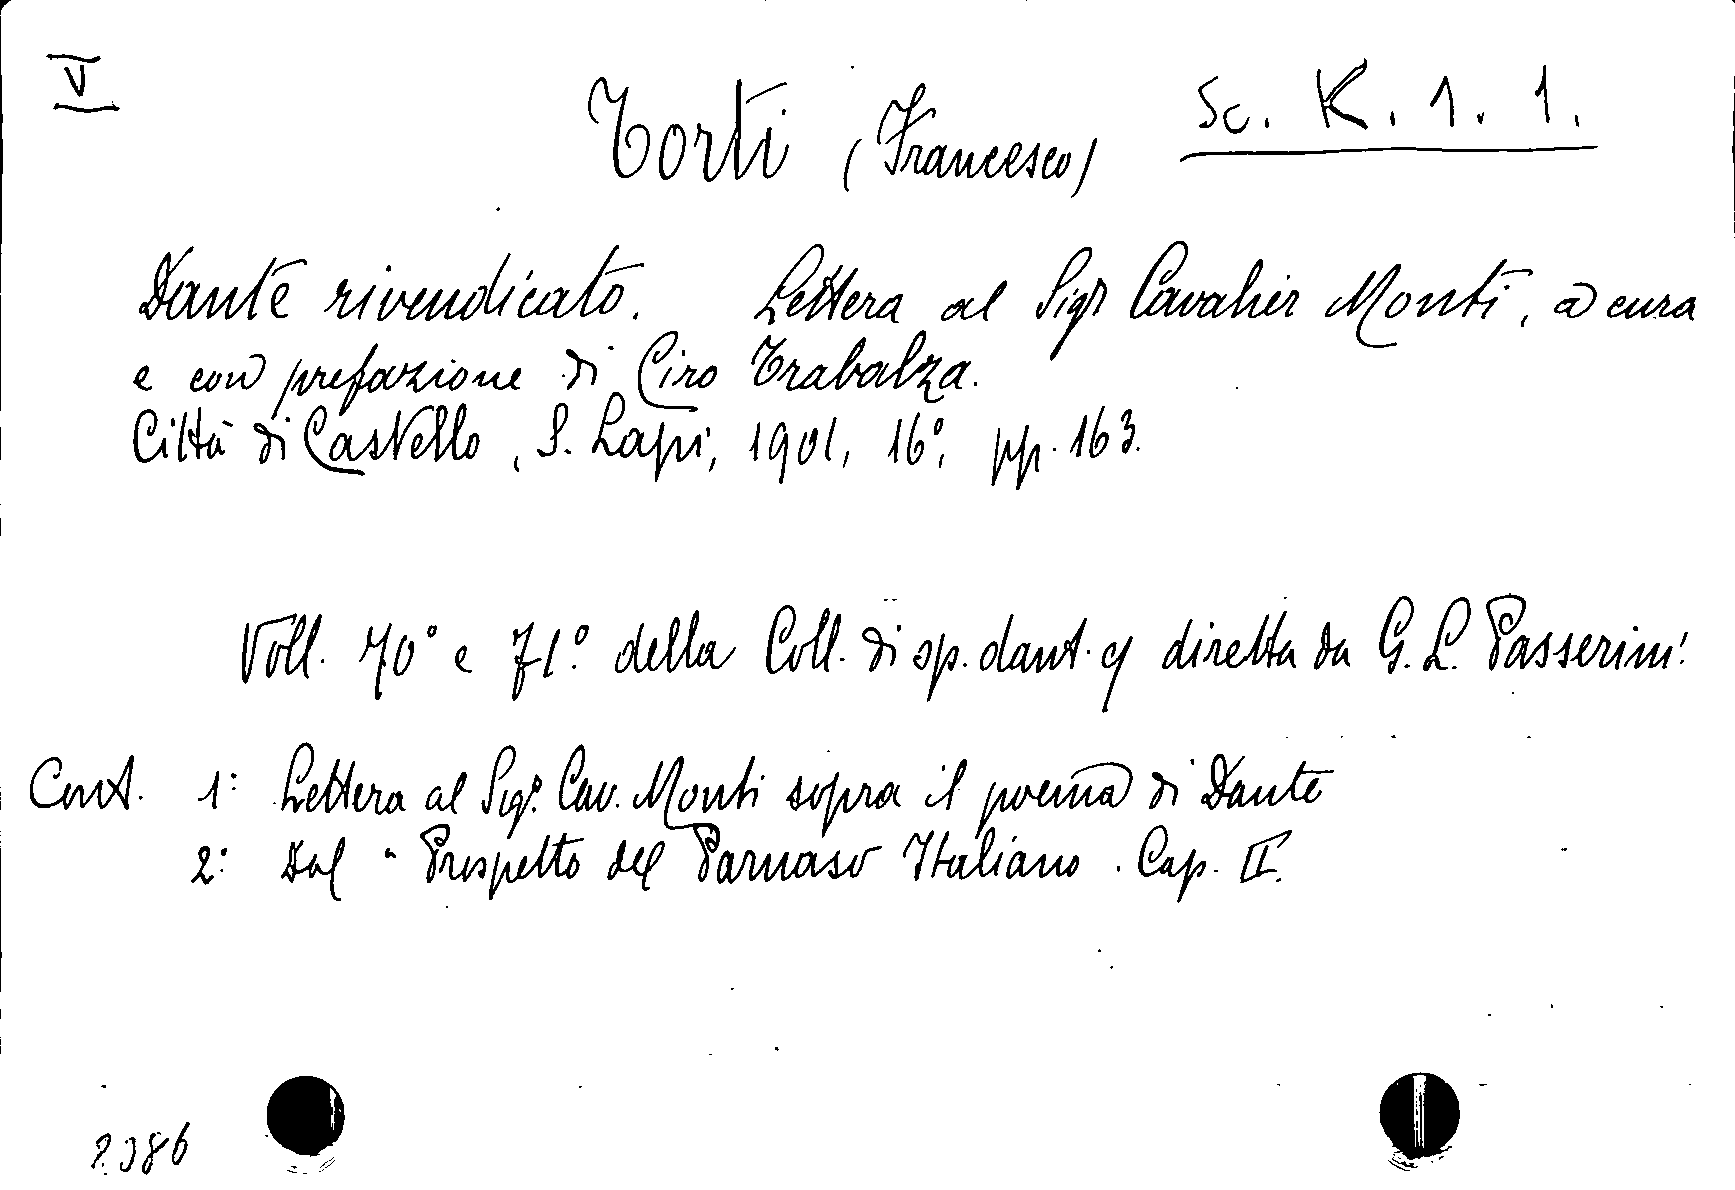 V
Torti (Francesco)
Sc. K. 1. 1.
Dante rivendicato. Lettera al Sigr Cavalier Monti, a cura
e con prefazione di Ciro Trabalza.
Città di Castello, S. Lapi, 1901, 16°, pp. 163.
Voll. 70° e 71° della Coll. di op. dant. diretta da G. L. Passerini.
Cont. 1: Lettera al Sigr. Cav. Monti sopra il poema di Dante
2: Dal " Prospetto del Parnaso Italiano. Cap. II.
2386